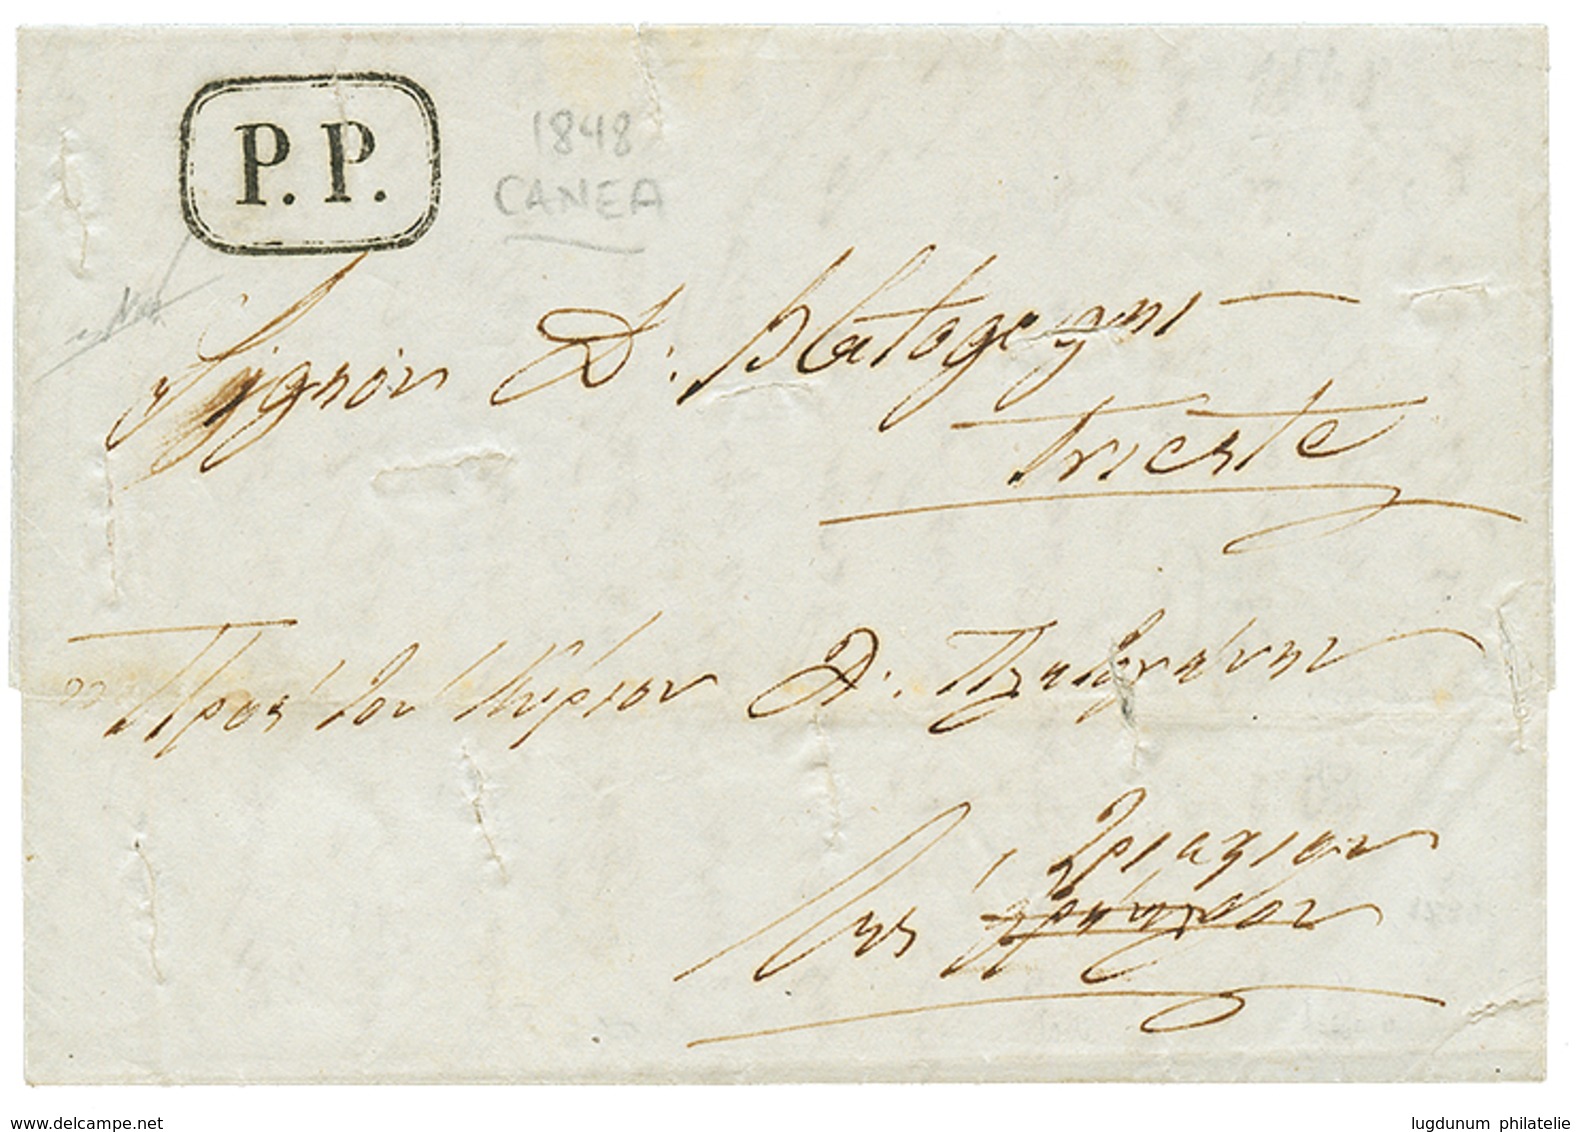 P. P.
1848
CANEA
Siggnor D. Platogegni
Trieste
Πρός τον Κύριον Δ.
Εις Τριέστιον
www.delcampe.net
lugdunum philatelie